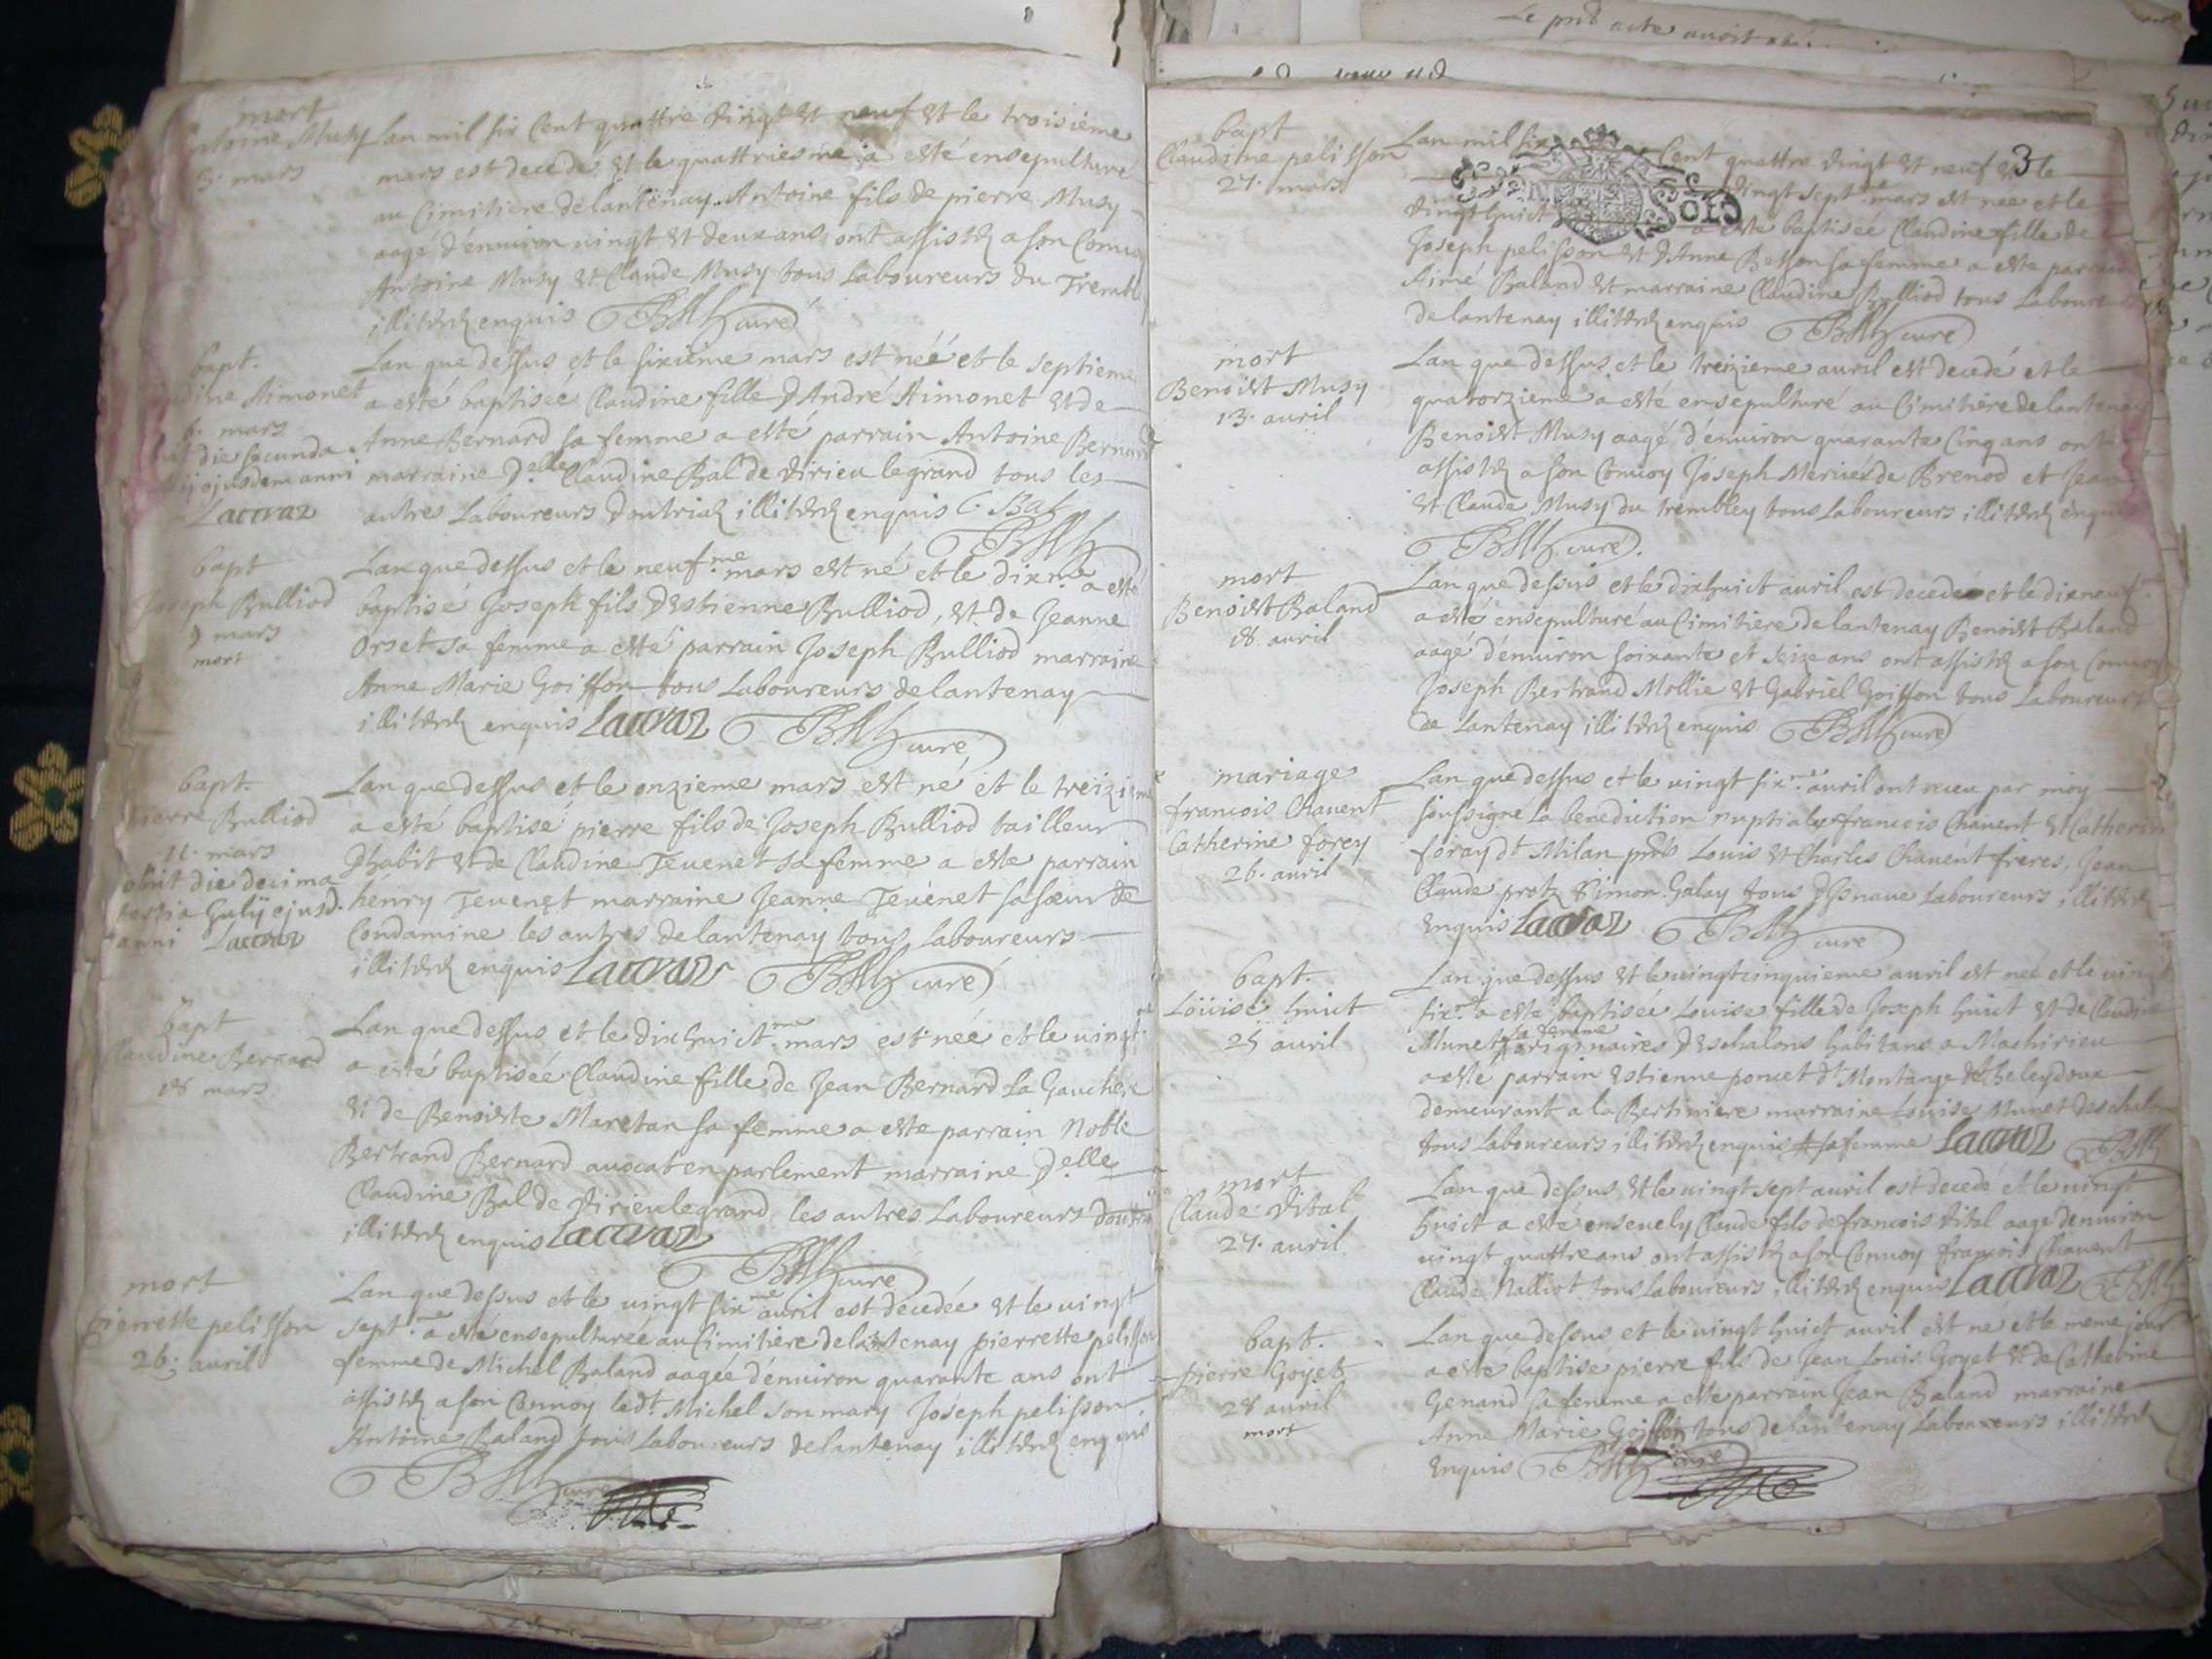 Le pnt acte auoit
mort
Antoine Musy
3. mars
Lan mil six Cent quattre vingt et neuf et le troisième
mars est decedé et le quattriesme a esté ensepulturé
au Cimitiere de lantenay Antoine fils de pierre Musy
aagé d'enuiron uingt et deux ans ont assistez a son
Antoine Musy et Claude Musy tous Laboureurs du
illiterez enquis curé
bapt.
Aimonet
6. mars
die secunda
ejusdem anni
Laccraz
Lan que dessus et le sixième mars est néé et le septieme
a esté baptiséé Claudine fille d'André Aimonet et de
Anne Bernard sa femme a esté parrain Antoine Bernard
marraine Delle Claudine Bal de virieu legrand tous les
autres Laboureurs doutriaz illiterez enquis C. Bal
bapt
Joseph Bulliod
9 mars
mort
Lan que dessus et le neufme mars est né et le dixme a esté
baptisé Joseph fils d'Estienne Bulliod, et de Jeanne
Orset sa femme a esté parrain Joseph Bulliod marraine
Anne Marie Goiffon tous Laboureurs de lantenay
illiterez enquis Laccraz curé
bapt.
Pierre Bulliod
11. mars
obiit die decima
tertia Julij ejusd.
anni Laccraz
Lan que dessus et le onzieme mars est né et le treizieme
a esté baptisé pierre fils de Joseph Bulliod tailleur
d'habit et de Claudine Teuenet sa femme a esté parrain
henry Teuenet marraine Jeanne Teuenet sa sœur de
Condamine les autres de lantenay tous Laboureurs
illiterez enquis Laccraz curé
bapt
Claudine Bernard
18 mars
Lan que dessus et le dixhuictme mars est néé et le uingt
a esté baptiséé Claudine fille de Jean Bernard La Gauchere
et de Benoiste Maretan sa femme a esté parrain Noble
Bertrand Bernard auocat en parlement marraine Delle
Claudine Bal de virieulegrand les autres Laboureurs
illiterez enquis Laccraz
curé
mort
pierrette pelisson
26. auril
Lan que dessus et le uingt sixme auril est decedée et le uingt
septme a esté ensepulturéé au Cimitière de lantenay pierrette pelisson
femme de Michel Baland aagée d'enuiron quarante ans ont
assistez a son Conuoy ledt. Michel son mary Joseph pelisson
Antoine Baland tous Laboureurs de lantenay illiterez enquis
curé
3
bapt
Claudine pelisson
27. mars
Lan mil six Cent quattre vingt et neuf et le
vingt septme mars est nee et le
vingt huict a esté baptiséé Claudine fille de
Joseph pelisson et d'Anne Besson sa femme a esté parrain
Aimé Baland et marraine Claudine Bulliod tous Laboureurs
de lantenay illiterez enquis curé
mort
Benoist Musy
13. auril
Lan que dessus et le treizieme auril est decedé et le
quatorzieme a esté ensepulturé au Cimitière de lantenay
Benoist Musy aagé d'enuiron quarante Cinq ans ont
assistez a son Conuoy Joseph de Brenod et Jean
et Claude Musy du trembley tous Laboureurs illiterez enquis
curé.
mort
Benoist Baland
18. auril
Lan que dessus et le dixhuict auril est decedé et le dixneufme
a esté ensepulturé au Cimitière de lantenay Benoist Baland
aagé d'enuiron soixante et seize ans ont assistez a son Conuoy
Joseph Bertrand Mollie et Gabriel Goiffon tous Laboureurs
de Lantenay illiterez enquis curé
mariage
francois Chauent
Catherine forey
26. auril
Lan que dessus et le uingt sixme auril ont receu par moy
soussigné la benediction nuptiale francois Chauent et Catherine
foray dt Milan pnts Louis et Charles Chauent freres, Jean
Claude Simon Galay tous d'Isnaue Laboureurs illiterez
enquis Laccraz curé
bapt.
Loüise huict
25 auril
Lan que dessus et le uingtcinquieme auril est nee et le uingt
sixme a esté baptisée Louise fille de Joseph huict et de Claudine
Munet sa femme originaires d'Eschalons habitans a Machirieu
a esté parrain Estienne poncet dt Montange
demeurant a la Bertiniere marraine Louise Munet
tous Laboureurs illiterez enquis sa femme Laccraz
mort
Claude Vital
27. auril
Lan que dessus et le uingt sept auril est decedé et le uingt
huict a esté enseuely Claude fils de francois Vital aagé d'enuiron
uingt quattre ans ont assistez a son Conuoy francois Chauent
Claude Nalliot tous Laboureurs illiterez enquis Laccraz
bapt.
pierre Goyet
28 auril
mort
Lan que dessus et le uingt huict auril est né et le meme jour
a esté baptisé pierre fils de Jean Louis Goyet et de Catherine
Genand sa femme a esté parrain Jean Baland marraine
Anne Marie Goiffon tous de lantenay Laboureurs illiterez
enquis curé